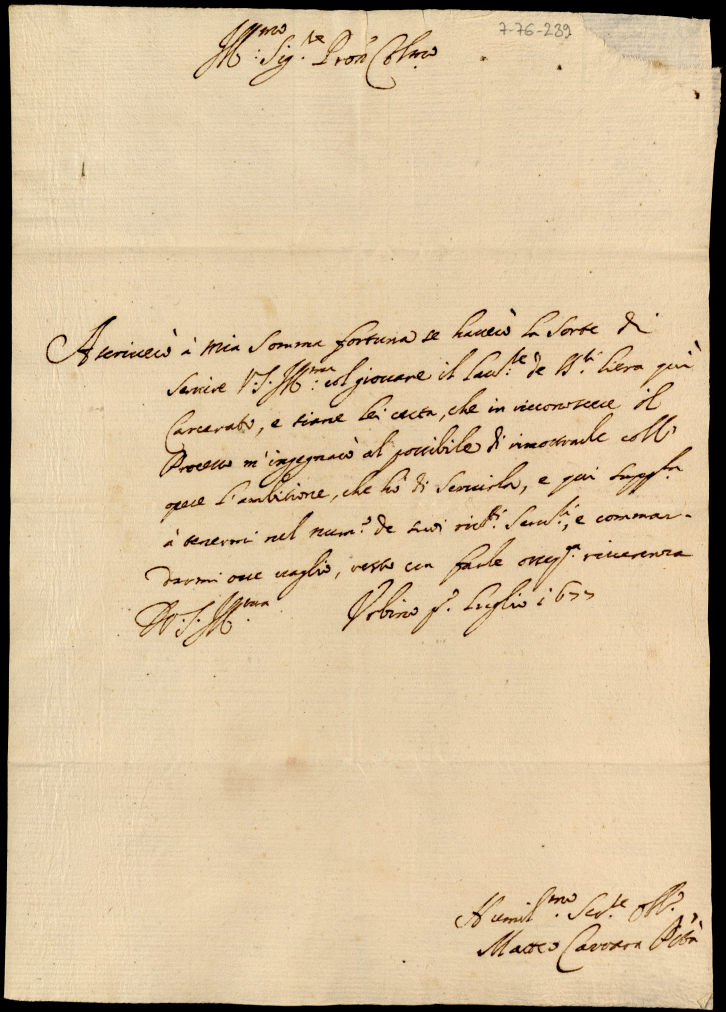 7-76-239
Ill.mo Sig.re Pron Col.mo
Ascriverò à mia somma fortuna se haverò la sorte di
servire V.S. Ill.ma col giovare il de qui
Carcerato, e stiane lei certa, che in riconoscere il
Processo m'ingegnarò al possibile di dimostrarle coll'
opere l'ambitione, che hò di servirla, e qui
à tenermi nel num.o de suoi e comman-
darmi ove vaglio, resto con farle riverenza
Di V.S. Ill.ma Urbino p.o Luglio 1677
Humil.mo Ser.re Obl.o
Matteo